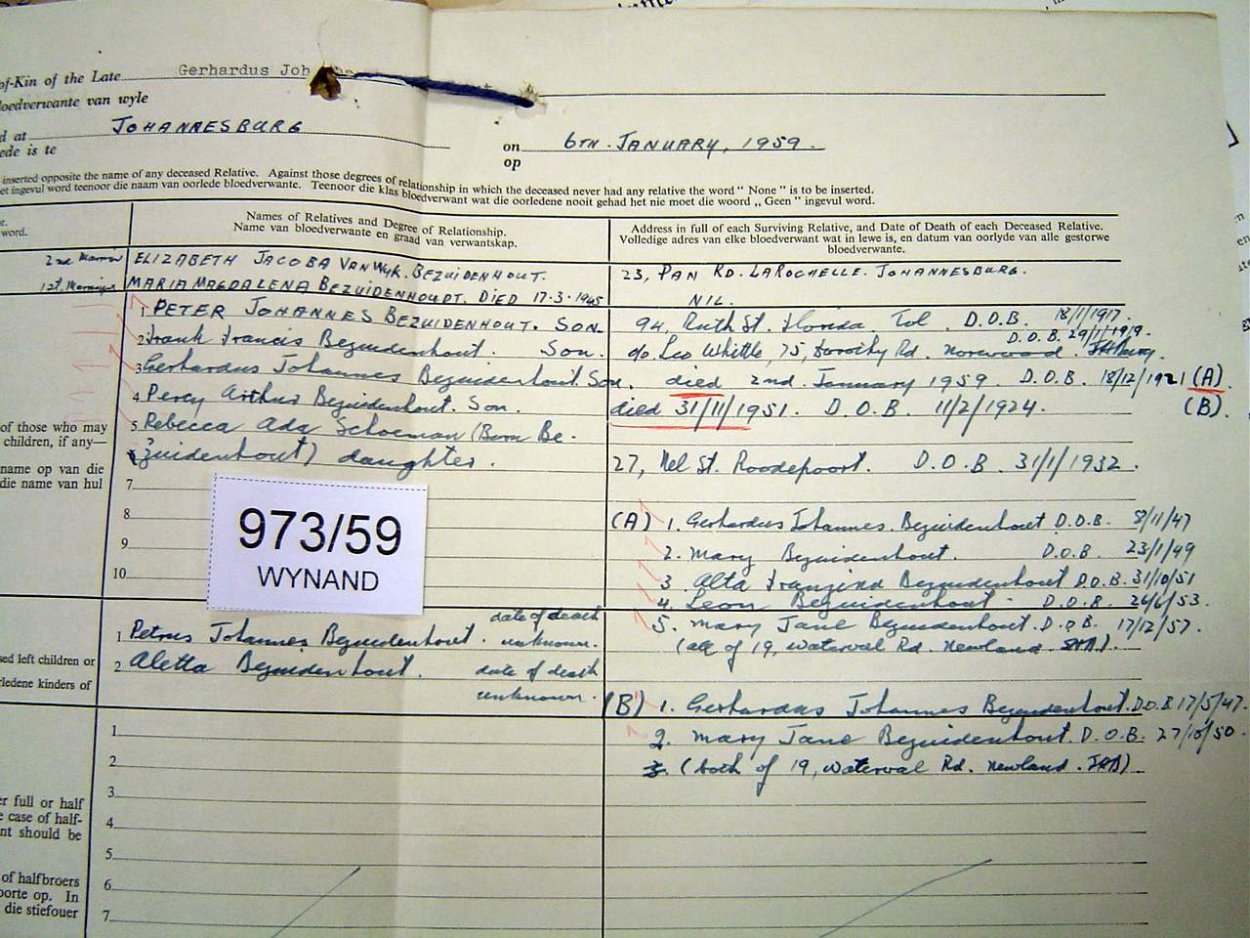 of-Kin of the Late Gerhardus Joh
loedverwante van wyle
d at JOHANNESBURG on 6TH. JANUARY, 1959.
ede is te op
inserted opposite the name of any deceased Relative. Against those degrees of relationship in which the deceased never had any relative the word " None " is to be inserted.
et ingevul word teenoor die naam van oorlede bloedverwante. Teenoor die klas bloedverwant wat die oorledene nooit gehad het nie moet die woord „ Geen " ingevul word.
word.
Names of Relatives and Degree of Relationship.
Name van bloedverwante en graad van verwantskap.
Address in full of each Surviving Relative, and Date of Death of each Deceased Relative.
Volledige adres van elke bloedverwant wat in lewe is, en datum van oorlyde van alle gestorwe
bloedverwante.
2nd ELIZABETH JACOBA VAN WYK. BEZUIDENHOUT. 23, PAN RD. LAROCHELLE. JOHANNESBURG.
1st. Marriage MARIA MAGDALENA BEZUIDENHOUDT. DIED 17.3.1945 NIL.
1. PETER JOHANNES BEZUIDENHOUT. SON 94, Ruth St. Florida. Tvl D.O.B. 18/1/1917.
2. Frank Francis Bezuidenhout. Son. c/o. Leo Whittle, 75, Dorothy Rd. Norwood. D.O.B. 29/1/1919.
3. Gerhardus Johannes Bezuidenhout. Son. died 2nd. January 1959. D.O.B. 18/12/1921 (A)
4. Percy Arthur Bezuidenhout. Son. died 31/11/1951. D.O.B. 11/2/1924. (B).
5. Rebecca Ada Schoeman (Born Be-
zuidenhout) daughter. 27, Nel St. Roodepoort. D.O.B. 31/1/1932.
of those who may
children, if any—
name op van die
die name van hul
7.
8
9.
10.
973/59
WYNAND
(A) 1. Gerhardus Johannes. Bezuidenhout D.O.B. 8/11/47
2. Mary Bezuidenhout. D.O.B. 23/1/49
3. Alta Bezuidenhout D.O.B. 31/10/51
4. Leon Bezuidenhout D.O.B. 26/6/53.
5. Mary Jane Bezuidenhout. D.O.B. 17/12/57.
(all of 19, Waterval Rd. Newland. JHB).
1. Petrus Johannes Bezuidenhout. date of death unknown.
2 Aletta Bezuidenhout. date of death
unknown.
sed left children or
rledene kinders of
(B) 1. Gerhardus Johannes Bezuidenhout. D.O.B 17/5/47.
2. Mary Jane Bezuidenhout. D.O.B. 27/10/50.
3. (both of 19, Waterval Rd. Newland. JHB).
1
2
3
4
5
6
7
er full or half
e case of half-
nt should be
of halfbroers
oorte op. In
die stiefouer